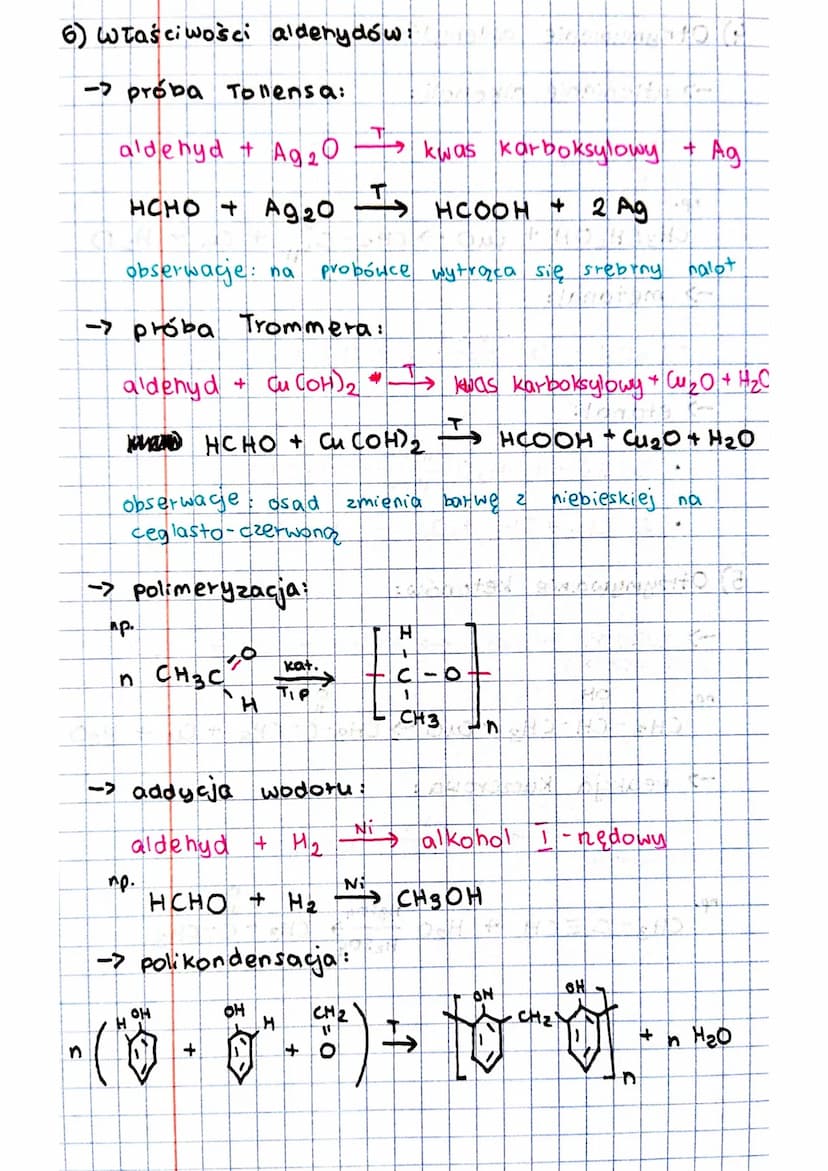 6) właściwości aldehydów:
-> próba Tollensa:
aldehyd + Ag2O T→ kwas karboksylowy + Ag
HCHO + Ag2O T→ HCOOH + 2 Ag
obserwacje: na probówce wytrąca się srebrny nalot
-> próba Trommera:
aldehyd + Cu(OH)2 T→ kwas karboksylowy + Cu2O + H2O
HCHO + Cu(OH)2 T→ HCOOH + Cu2O + H2O
obserwacje: osad zmienia barwę z niebieskiej na
ceglasto-czerwoną
-> polimeryzacja:
np.
n CH3C O H kat. T1P → [ H C - O CH3 ]n
-> addycja wodoru:
aldehyd + H2 Ni→ alkohol I-rzędowy
np.
HCHO + H2 Ni→ CH3OH
-> polikondensacja:
n ( H OH + OH H + CH2 = O ) T→ [ OH CH2 OH ]n + n H2O